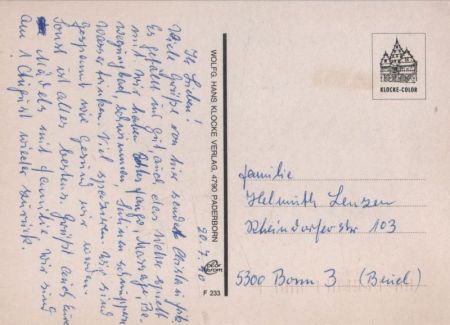 20.7.90
Ihr Lieben!
Viele Grüße von hier sendet Christa
Es gefällt uns gut auch das Wetter spielt
mit. Wir haben Fango, Massage, Be-
wegungsbad, schwimmen,
Wasser trinken. Viel spazieren. Wir sind
gespannt wie gesund wir werden.
Sonst ist alles bestens. Grüßt auch
Mädels mit Familie. Wir sind
am 1 August wieder zurück.
WOLFG. HANS KLOCKE VERLAG, 4790 PADERBORN
F 233
KLOCKE-COLOR
Familie
Helmuth Lenzen
Rheindorferstr 103
5300 Bonn 3 (Beuel)